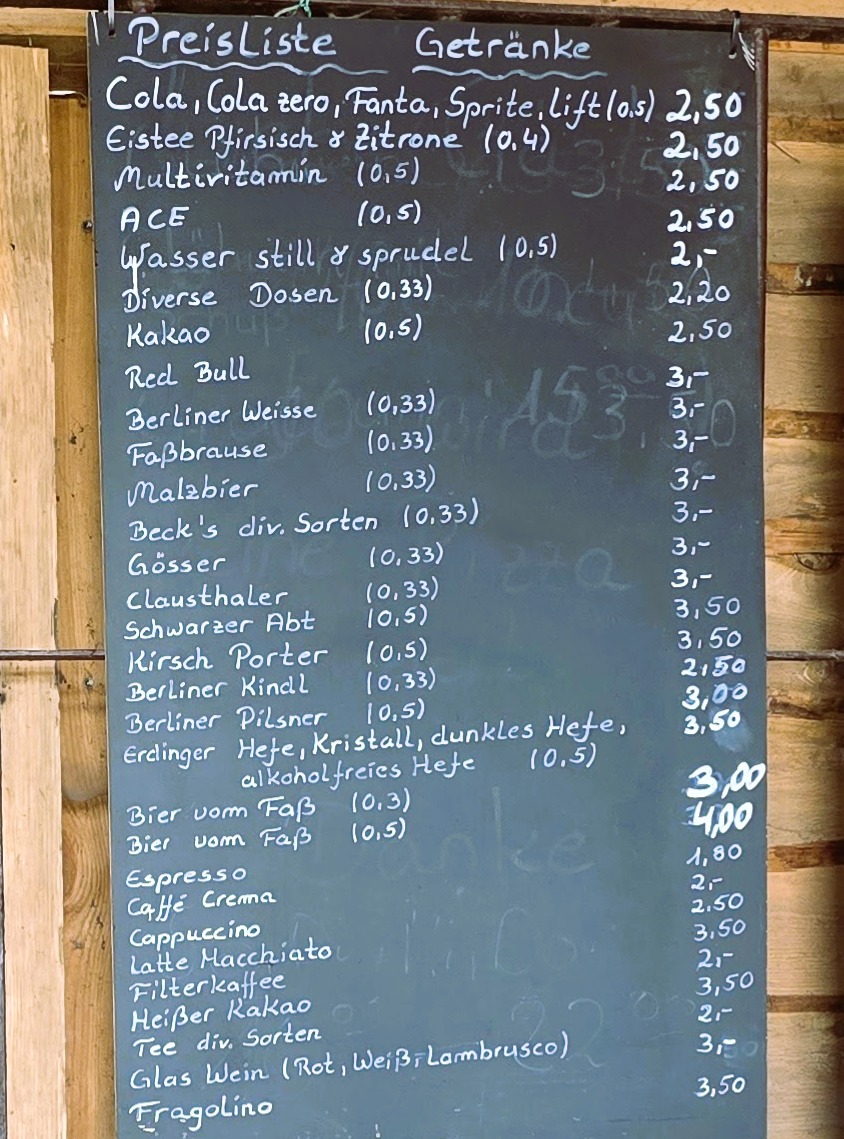 Preisliste Getränke
Cola, Cola zero, Fanta, Sprite, Lift (0.5) 2,50
Eistee Pfirsisch & Zitrone (0,4) 2,50
Multivitamin (0,5) 2,50
ACE (0,5) 2,50
Wasser still & sprudel (0,5) 2,-
Diverse Dosen (0,33) 2,20
Kakao (0,5) 2,50
Red Bull 3,-
Berliner Weisse (0,33) 3,-
Faßbrause (0,33) 3,-
Malzbier (0,33) 3,-
Beck's div. Sorten (0,33) 3,-
Gösser (0,33) 3,-
Clausthaler (0,33) 3,-
Schwarzer Abt (0,5) 3,50
Kirsch Porter (0,5) 3,50
Berliner Kindl (0,33) 2,50
Berliner Pilsner (0,5) 3,00
Erdinger Hefe, Kristall, dunkles Hefe, 3,50
alkoholfreies Hefe (0,5)
Bier vom Faß (0,3) 3,00
Bier vom Faß (0,5) 4,00
Espresso 1,80
Caffé Crema 2,-
Cappuccino 2.50
Latte Macchiato 3,50
Filterkaffee 2,-
Heißer Kakao 3,50
Tee div. Sorten 2,-
Glas Wein (Rot, Weiß,-Lambrusco) 3,-
Fragolino 3,50